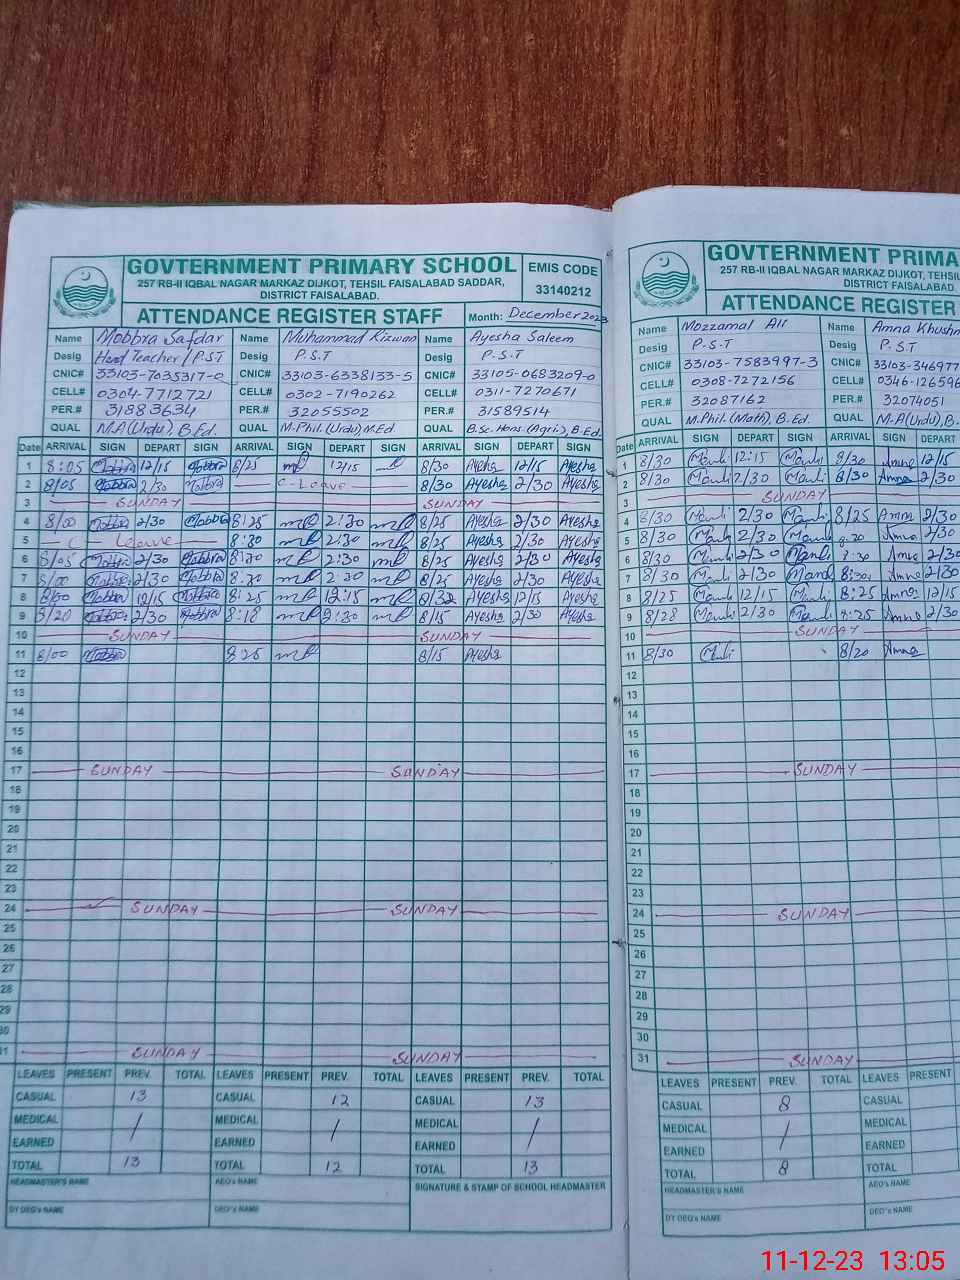 GOVTERNMENT PRIMARY SCHOOL
257 RB-II IQBAL NAGAR MARKAZ DIJKOT, TEHSIL FAISALABAD SADDAR,
DISTRICT FAISALABAD.
EMIS CODE
33140212
ATTENDANCE REGISTER STAFF
Month: December 2023
Name Mobbra Safdar Name Muhammad Rizwan Name Ayesha Saleem
Desig Head Teacher/P.S.T Desig P.S.T Desig P.S.T
CNIC# 33103-7035317-0 CNIC# 33103-6338133-5 CNIC# 33105-0683209-0
CELL# 0304-7712721 CELL# 0302-7190262 CELL# 0311-7270671
PER.# 31883634 PER.# 32055502 PER.# 31589514
QUAL M.A(Urdu), B.Ed. QUAL M.Phil.(Urdu), M.Ed QUAL B.Sc. Hons.(Agri.), B.Ed.
Date ARRIVAL SIGN DEPART SIGN ARRIVAL SIGN DEPART SIGN ARRIVAL SIGN DEPART SIGN
1 8:05 Mobbra 12/15 Mobbra 8/25 12/15 8/30 Ayesha 12/15 Ayesha
2 8/05 Mobbra 2/30 Mobbra C-Leave 8/30 Ayesha 2/30 Ayesha
3 SUNDAY SUNDAY
4 8/00 Mobbra 2/30 Mobbra 8:25 2:30 8/25 Ayesha 2/30 Ayesha
5 C Leave 8:30 2:30 8/25 Ayesha 2/30 Ayesha
6 8/05 Mobbra 2/30 Mobbra 8:30 2:30 8/25 Ayesha 2/30 Ayesha
7 8/00 Mobbra 2/30 Mobbra 8:30 2:30 8/25 Ayesha 2/30 Ayesha
8 8/00 Mobbra 12/15 Mobbra 8:25 12:15 8/32 Ayesha 12/15 Ayesha
9 8/20 Mobbra 2/30 Mobbra 8:18 2:30 8/15 Ayesha 2/30 Ayesha
10 SUNDAY SUNDAY
11 8/00 Mobbra 8:25 8/15 Ayesha
12
13
14
15
16
17 SUNDAY SUNDAY
18
19
20
21
22
23
24 SUNDAY SUNDAY
25
26
27
28
29
30
31 SUNDAY SUNDAY
LEAVES PRESENT PREV. TOTAL LEAVES PRESENT PREV. TOTAL LEAVES PRESENT PREV. TOTAL
CASUAL 13 CASUAL 12 CASUAL 13
MEDICAL / MEDICAL / MEDICAL /
EARNED EARNED EARNED
TOTAL 13 TOTAL 12 TOTAL 13
HEADMASTER'S NAME AEO's NAME SIGNATURE & STAMP OF SCHOOL HEADMASTER
DY DEO's NAME DEO's NAME
GOVTERNMENT PRIMA
257 RB-II IQBAL NAGAR MARKAZ DIJKOT, TEHSIL
DISTRICT FAISALABAD.
ATTENDANCE REGISTER
Name Mozzamal Ali Name Amna Khushn
Desig P.S.T Desig P.S.T
CNIC# 33103-7583997-3 CNIC# 33103-346977
CELL# 0308-7272156 CELL# 0346-126596
PER.# 32087162 PER.# 32074051
QUAL M.Phil.(Math), B.Ed. QUAL M.A(Urdu), B.
Date ARRIVAL SIGN DEPART SIGN ARRIVAL SIGN DEPART
1 8/30 12:15 8/30 Amna 12/15
2 8/30 2/30 8/30 Amna 2/30
3 SUNDAY
4 8/30 2/30 8/25 Amna 2/30
5 8/30 2/30 8:20 Amna 2/30
6 8/30 2/30 8:30 Amna 2/30
7 8/30 2/30 8:30 Amna 2/30
8 8/25 12/15 8:25 Amna 12/15
9 8/28 2/30 8:25 Amna 2/30
10 SUNDAY
11 8/30 8/20 Amna
12
13
14
15
16
17 SUNDAY
18
19
20
21
22
23
24 SUNDAY
25
26
27
28
29
30
31 SUNDAY
LEAVES PRESENT PREV. TOTAL LEAVES PRESENT
CASUAL 8 CASUAL
MEDICAL / MEDICAL
EARNED EARNED
TOTAL 8 TOTAL
HEADMASTER'S NAME AEO's NAME
DY DEO's NAME DEO's NAME
11-12-23 13:05